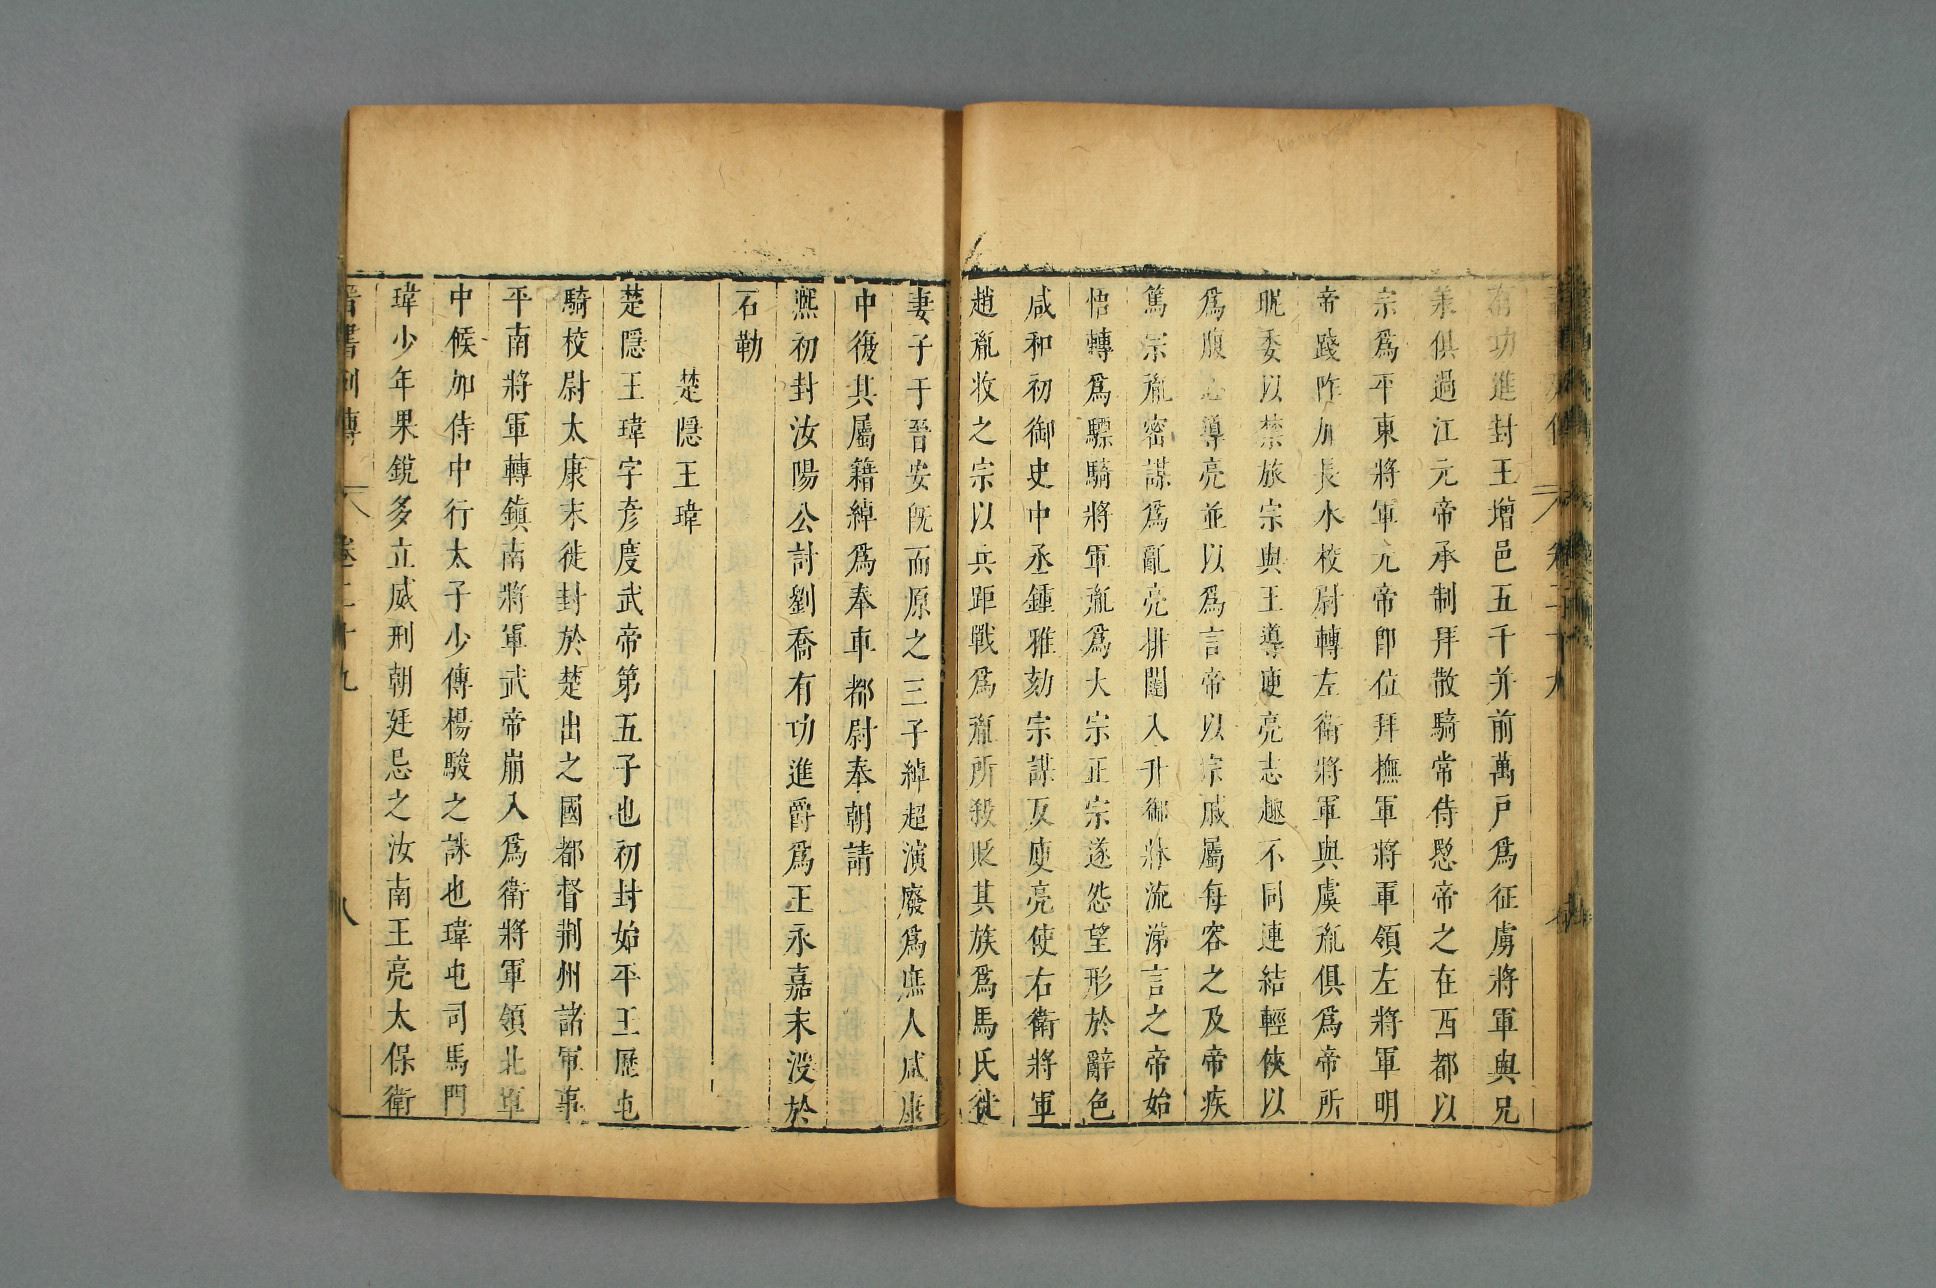 有功進封王增邑五千并前萬戸爲征虜將軍與兄
羕俱過江元帝承制拜散騎常侍愍帝之在西都以
宗爲平東將軍元帝卽位拜撫軍將軍領左將軍明
帝踐阼加長水校尉轉左衛將軍與虞胤俱爲帝所
昵委以禁旅宗與王導庾亮志趣不同連結輕俠以
爲腹心導亮並以爲言帝以宗戚屬每容之及帝疾
篤宗胤密謀爲亂亮排闥入升御牀流涕言之帝始
悟轉爲驃騎將軍胤爲大宗正宗遂怨望形於辭色
咸和初御史中丞鍾雅劾宗謀反庾亮使右衛將軍
趙胤收之宗以兵距戰爲胤所殺貶其族爲馬氏徙
妻子于晉安旣而原之三子綽超演廢爲庶人咸康
中復其屬籍綽爲奉車都尉奉朝請
熙初封汝陽公討劉喬有功進爵爲王永嘉末没於
石勒
楚隱王瑋
楚隱王瑋字彦度武帝第五子也初封始平王歷屯
騎校尉太康末徙封於楚出之國都督荆州諸軍事
平南將軍轉鎭南將軍武帝崩入爲衛將軍領北軍
中候加侍中行太子少傅楊駿之誅也瑋屯司馬門
瑋少年果銳多立威刑朝廷忌之汝南王亮太保衛
晉書列傳 卷二十九 八